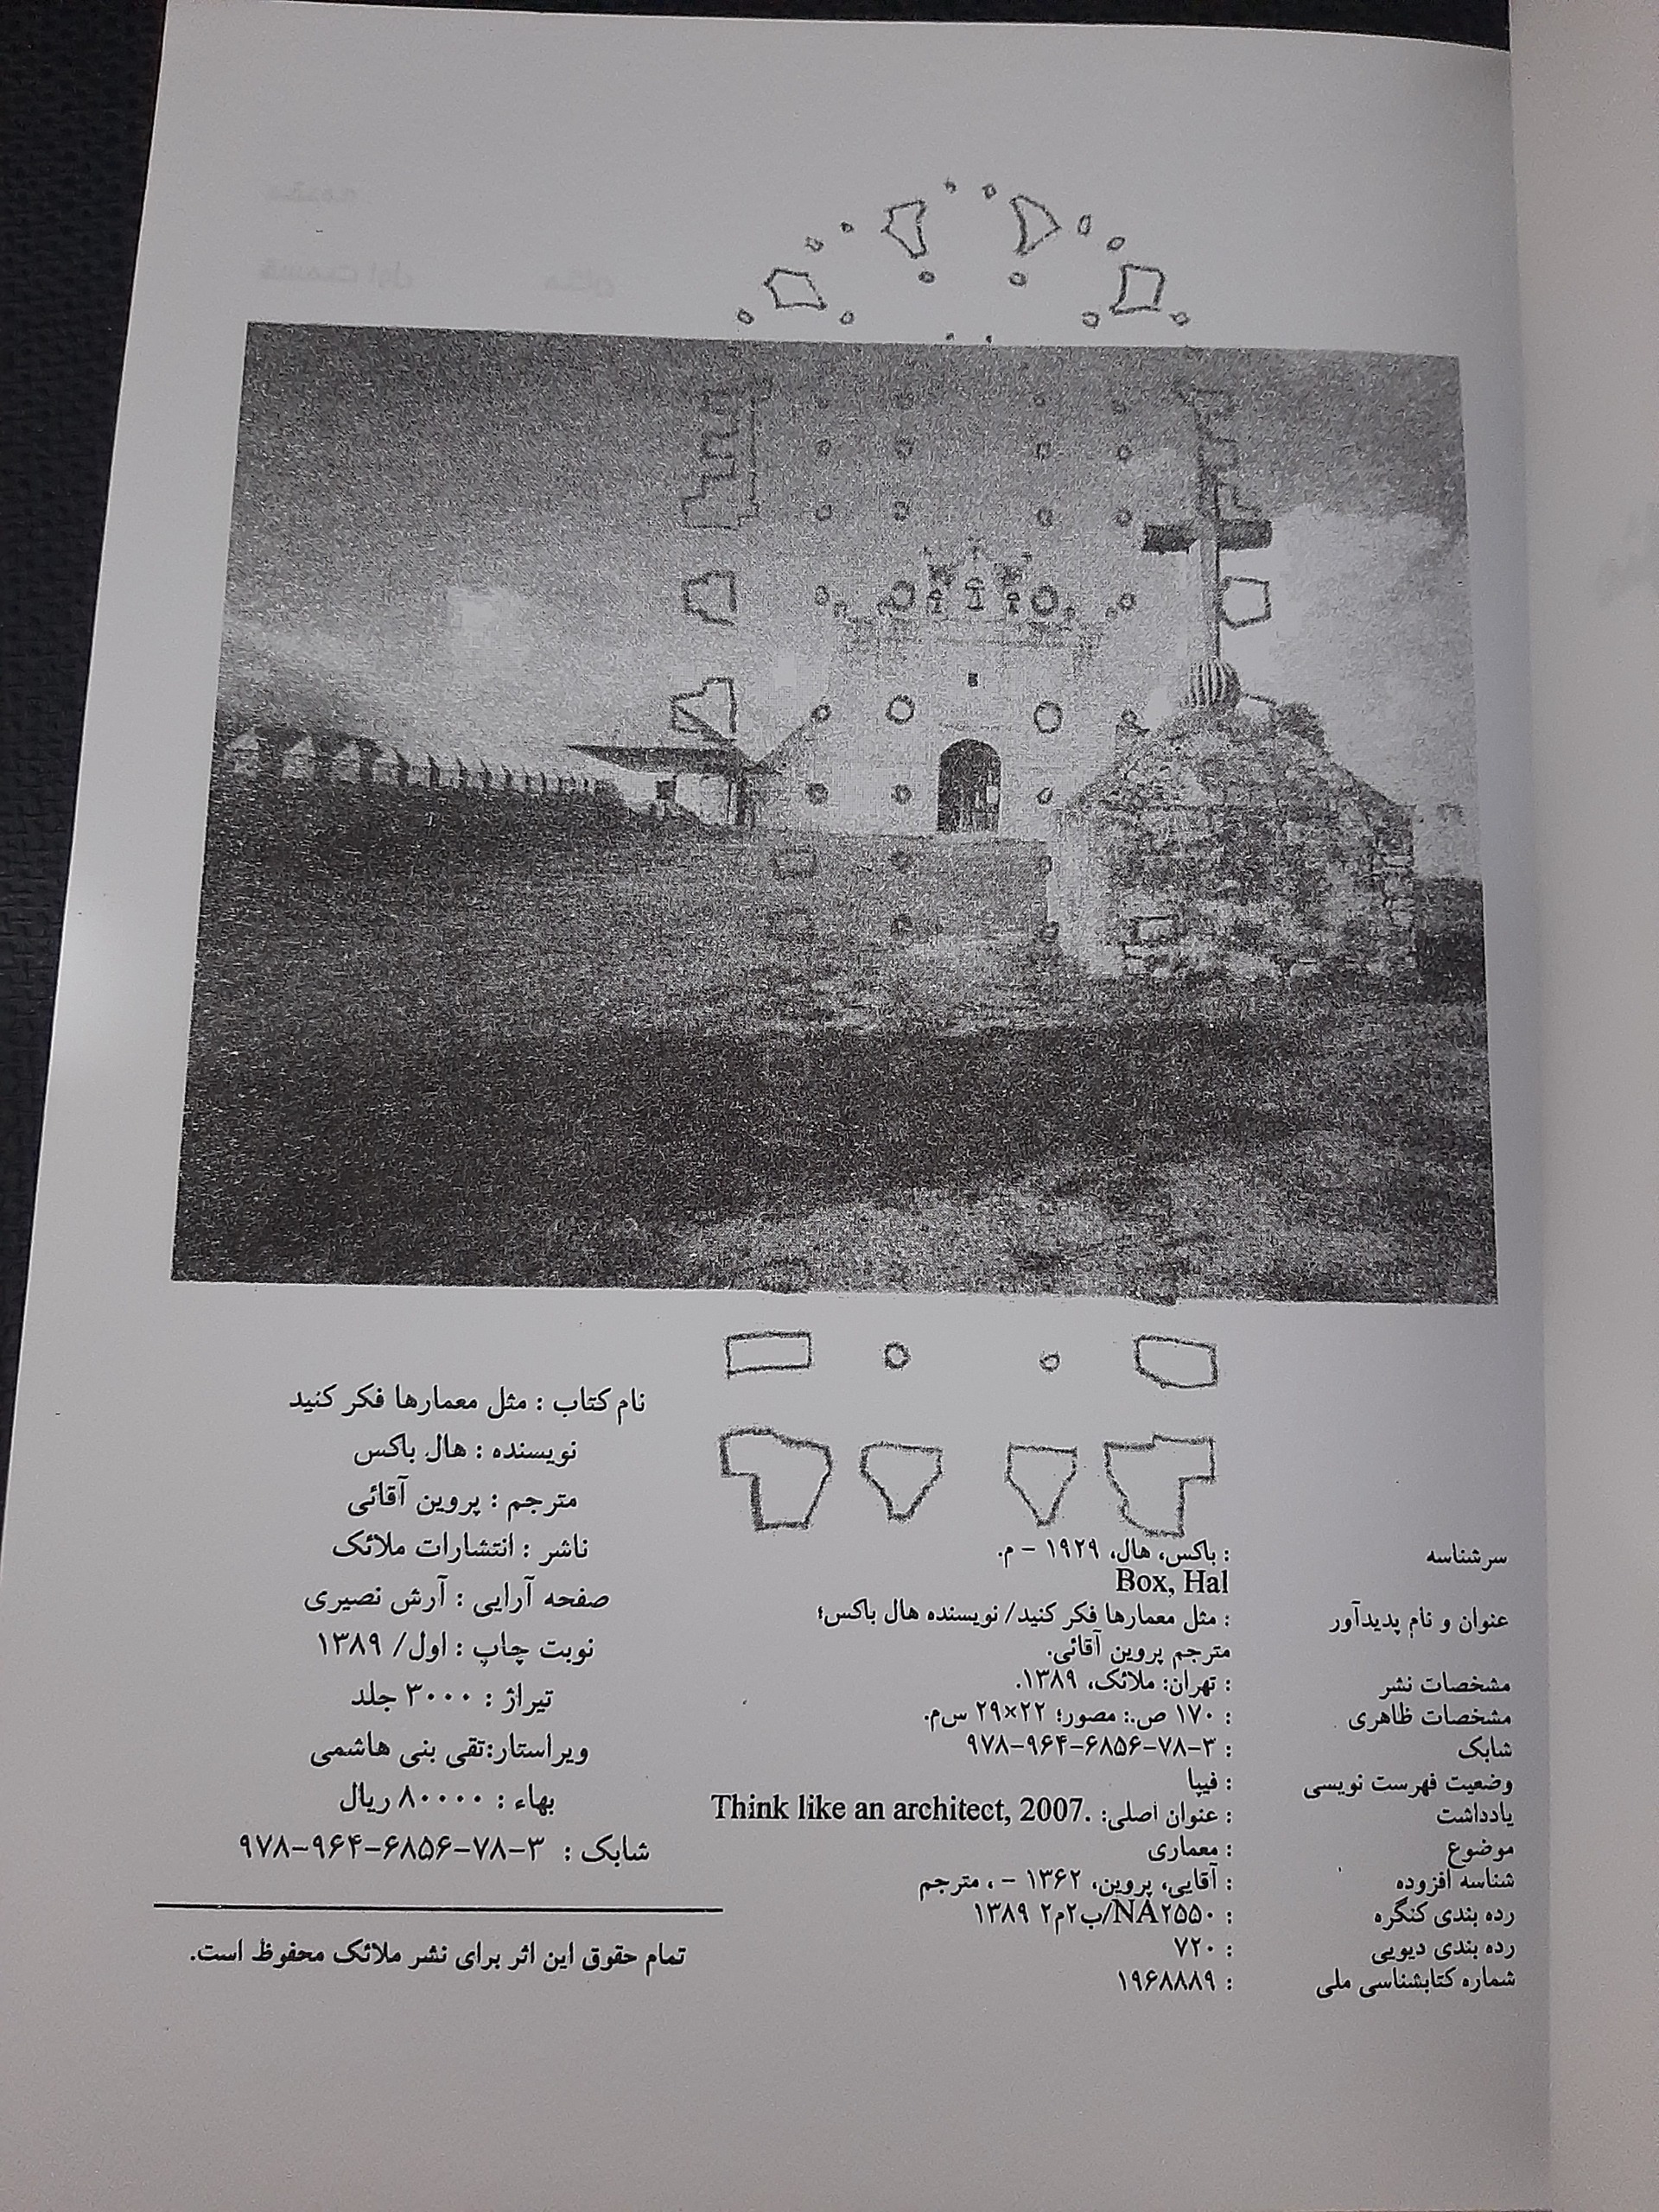 نام کتاب : مثل معمارها فکر کنید
نویسنده : هال باکس
مترجم : پروین آقائی
ناشر : انتشارات ملائک
صفحه آرایی : آرش نصیری
نوبت چاپ : اول/ ۱۳۸۹
تیراژ : ۳۰۰۰ جلد
ویراستار:تقی بنی هاشمی
بهاء : ۸۰۰۰۰ ریال
شابک : ۹۷۸-۹۶۴-۶۸۵۶-۷۸-۳
تمام حقوق این اثر برای نشر ملائک محفوظ است.
سرشناسه : باکس، هال، ۱۹۲۹ - م.
Box, Hal
عنوان و نام پدیدآور : مثل معمارها فکر کنید/ نویسنده هال باکس؛
مترجم پروین آقائی.
مشخصات نشر : تهران: ملائک، ۱۳۸۹.
مشخصات ظاهری : ۱۷۰ ص.: مصور؛ ۲۲×۲۹ س‌م.
شابک : ۹۷۸-۹۶۴-۶۸۵۶-۷۸-۳
وضعیت فهرست نویسی : فیپا
یادداشت : عنوان اصلی: Think like an architect, 2007.
موضوع : معماری
شناسه افزوده : آقایی، پروین، ۱۳۶۲ - ، مترجم
رده بندی کنگره : NA۲۵۵۰/ب۲م۲ ۱۳۸۹
رده بندی دیویی : ۷۲۰
شماره کتابشناسی ملی : ۱۹۶۸۸۸۹